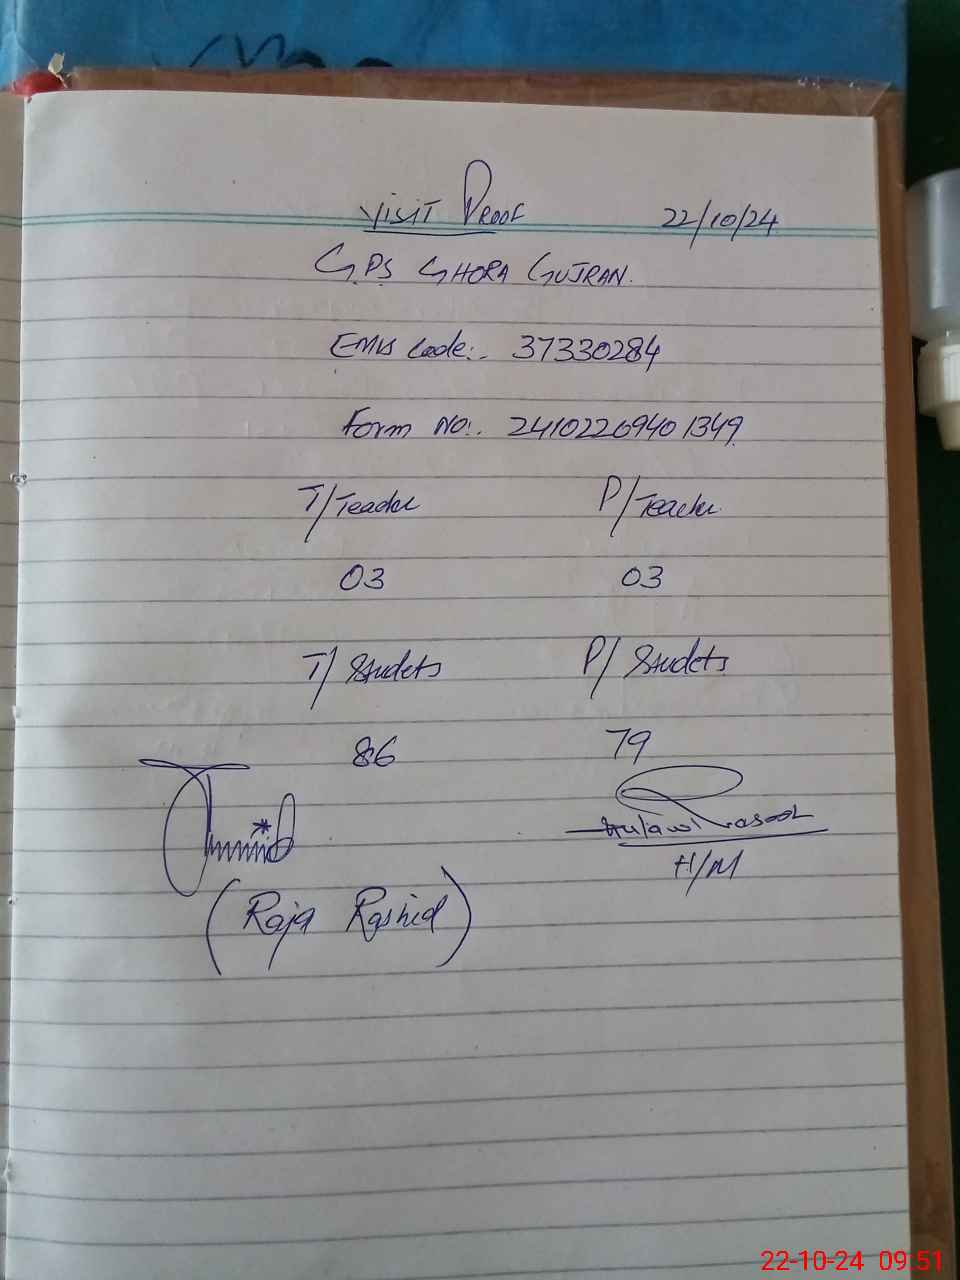 VISIT PROOF 22/10/24
G.P.S GHORA GUJRAN.
EMIS Code:. 37330284
Form NO:. 24102209401349
T/Teacher P/Teacher
03 03
T/Studets P/Studets
86 79
Rasool
H/M
(Raja Rashid)
22-10-24 09:51